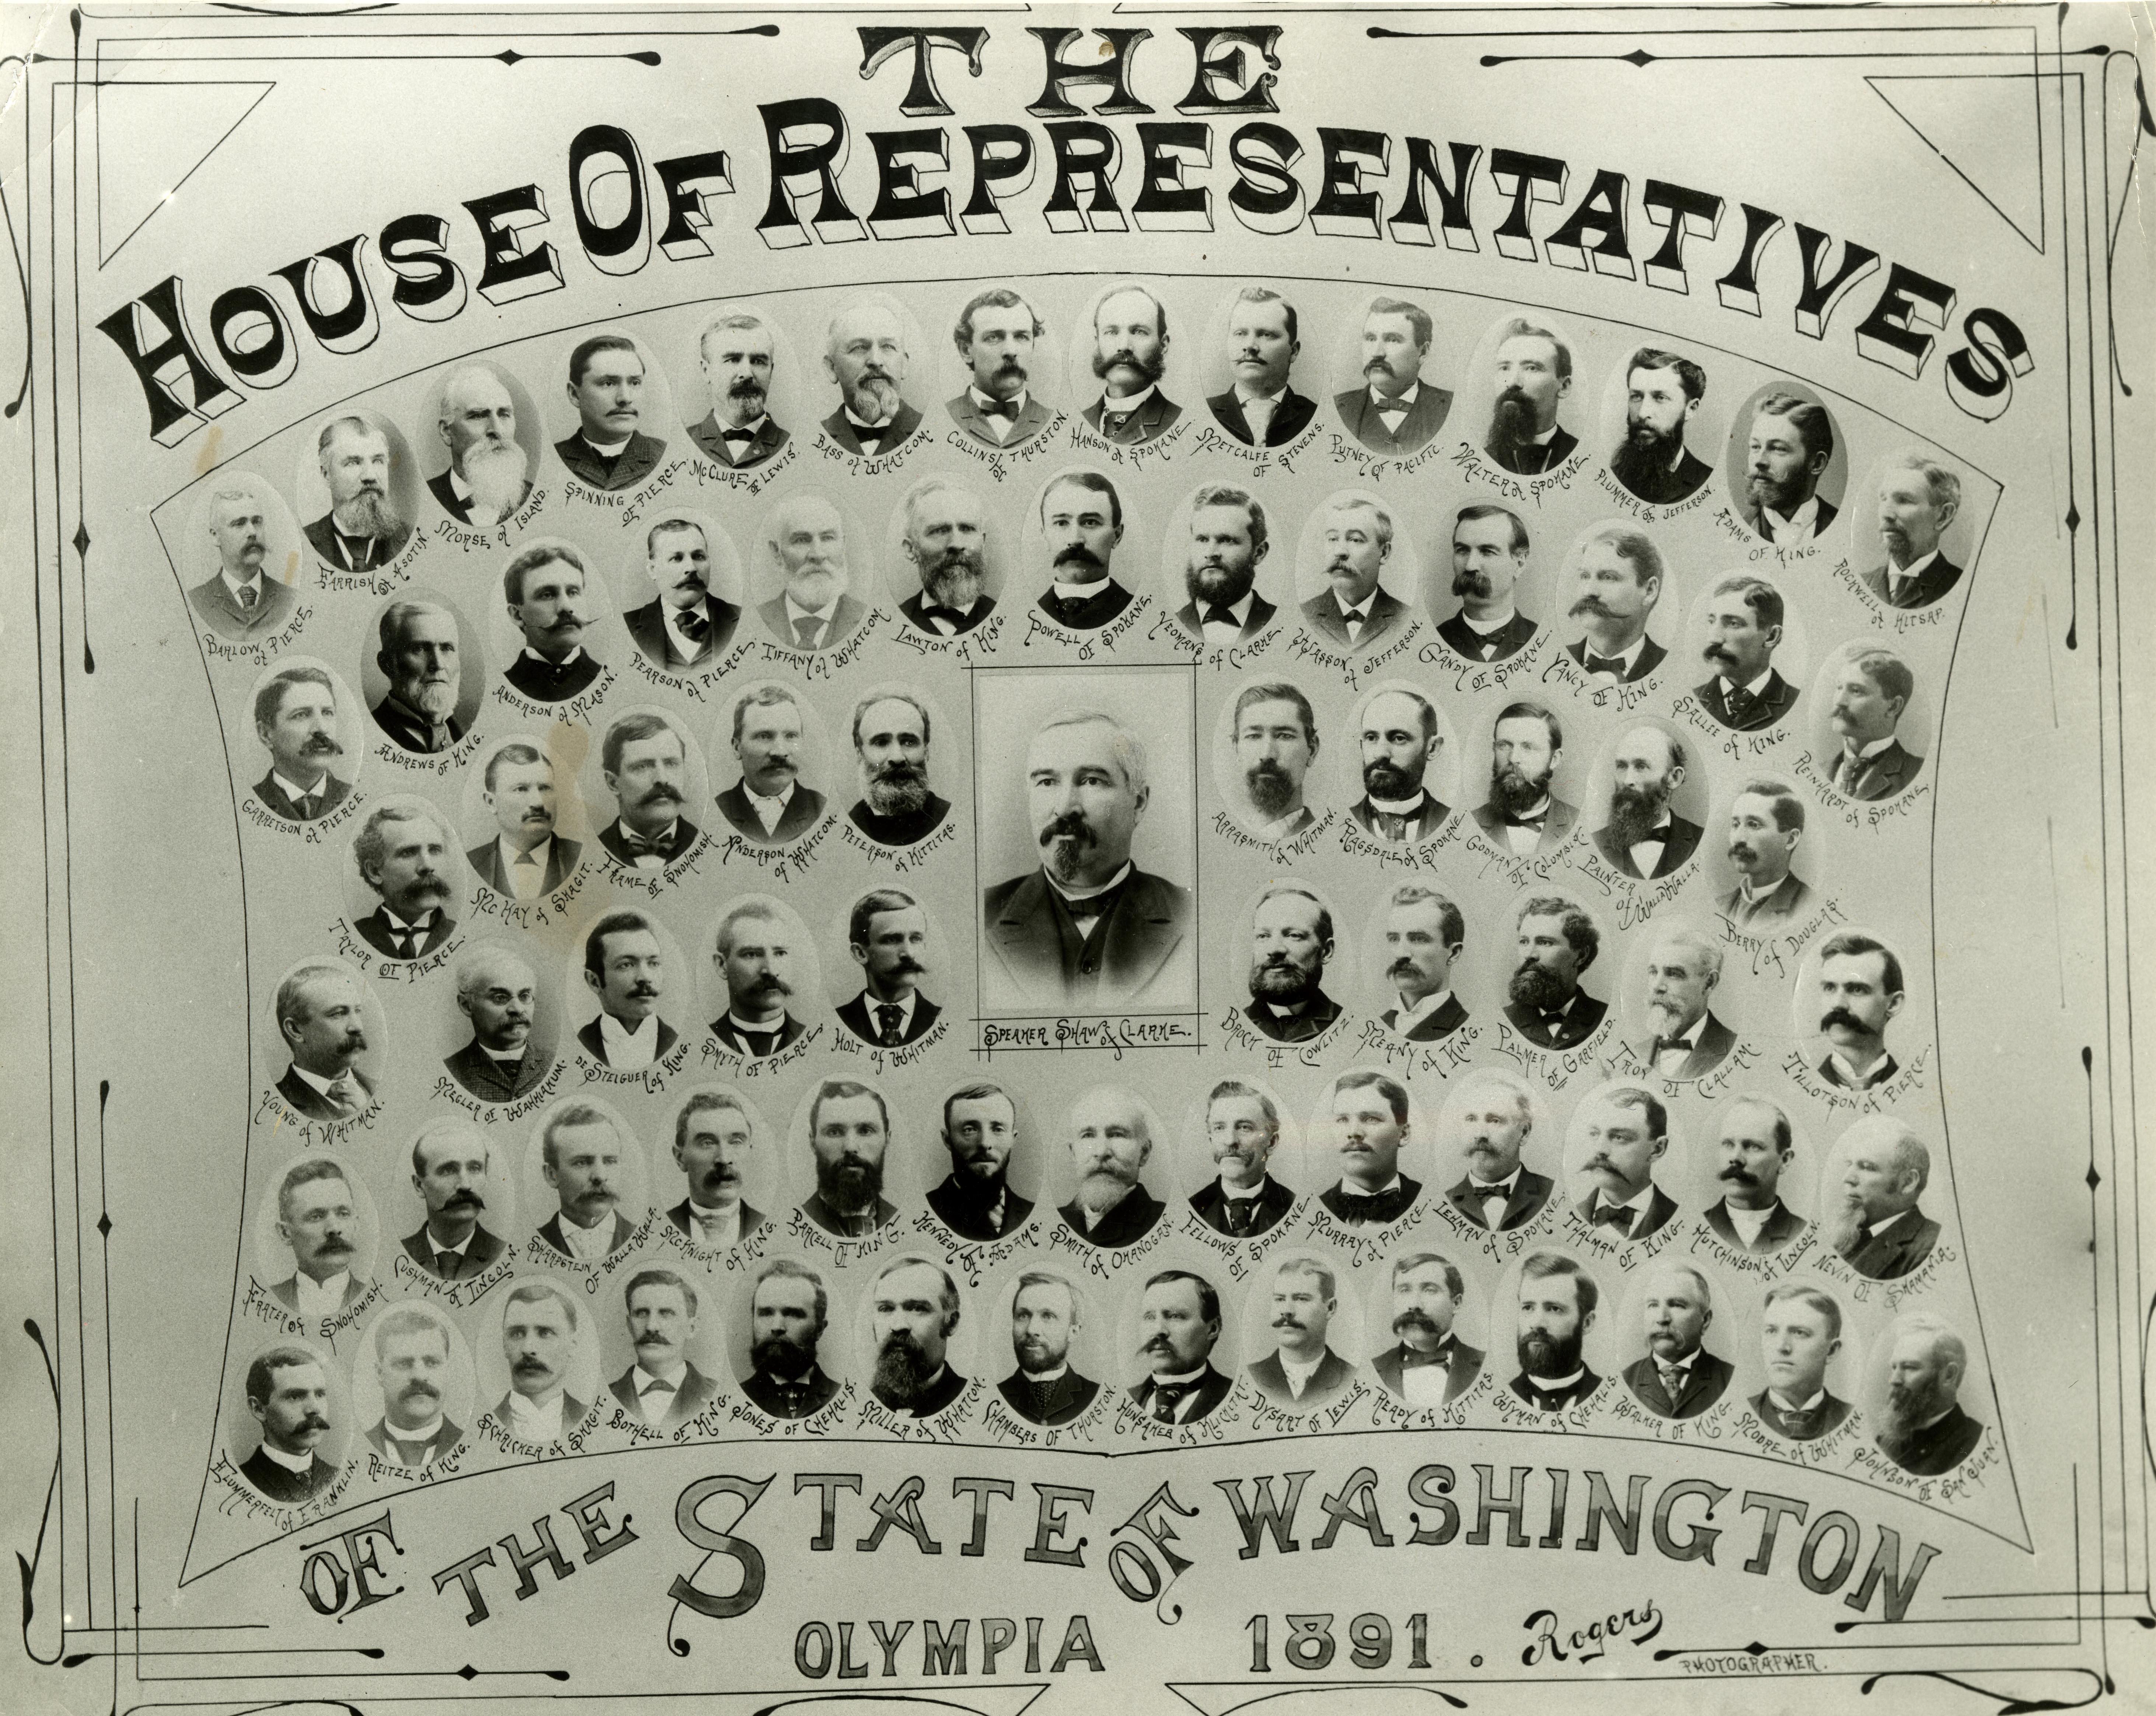 THE
HOUSE OF REPRESENTATIVES
BARLOW of PIERCE.
FARRISH of ASOTIN.
MORSE of ISLAND.
SPINNING OF PIERCE.
McCLURE of LEWIS.
BASS of WHATCOM.
COLLINS of THURSTON.
HANSON of SPOKANE
METCALFE OF STEVENS.
PUTNEY OF PACIFIC.
WALTER of SPOKANE.
PLUMMER of JEFFERSON.
ADAMS OF KING.
ROCKWELL of KITSAP.
GARRETSON of PIERCE.
ANDREWS OF KING.
ANDERSON of MASON.
PEARSON of PIERCE.
TIFFANY of WHATCOM.
LAWTON of KING.
POWELL OF SPOKANE.
YEOMANS of CLARKE.
WASSON of JEFFERSON.
GANDY OF SPOKANE.
YANCY OF KING.
SALLEE of KING.
REINHARDT of SPOKANE
TAYLOR OF PIERCE.
McKAY of SKAGIT.
FRAME OF SNOHOMISH.
ANDERSON of WHATCOM.
PETERSON of KITTITAS.
ARRASMITH of WHITMAN.
RAGSDALE of SPOKANE
GODMAN OF COLUMBIA.
PAINTER of WALLA WALLA.
BERRY of DOUGLAS.
YOUNG of WHITMAN.
MEGLER OF WAHKIAKUM.
DE STEIGUER of KING.
SMYTH OF PIERCE.
HOLT of WHITMAN.
SPEAKER SHAW of CLARKE.
BROCK OF COWLITZ.
MEANY of KING.
PALMER OF GARFIELD.
TROY OF CLALLAM.
TILLOTSON of PIERCE.
FRATER of SNOHOMISH.
CUSHMAN of LINCOLN.
SHARPSTEIN OF WALLA WALLA.
McKNIGHT of KING.
PARCELL OF KING.
KENNEDY OF ADAMS.
SMITH of OKANOGAN.
FELLOWS OF SPOKANE.
MURRAY of PIERCE.
LEHMAN of SPOKANE.
THALMAN OF KING.
HUTCHINSON of LINCOLN.
NEVIN OF SKAMANIA.
FLUMMERFELT of FRANKLIN.
REITZE of KING.
SCHRICKER of SKAGIT.
BOTHELL OF KING.
JONES OF CHEHALIS.
MILLER of WHATCOM.
CHAMBERS OF THURSTON.
HUNSAKER of KLICKITAT.
DYSART OF LEWIS.
READY of KITTITAS.
WYMAN of CHEHALIS.
WALKER OF KING.
MOORE of WHITMAN.
JOHNSON OF SAN JUAN.
OF THE STATE OF WASHINGTON
OLYMPIA 1891. Rogers
PHOTOGRAPHER.